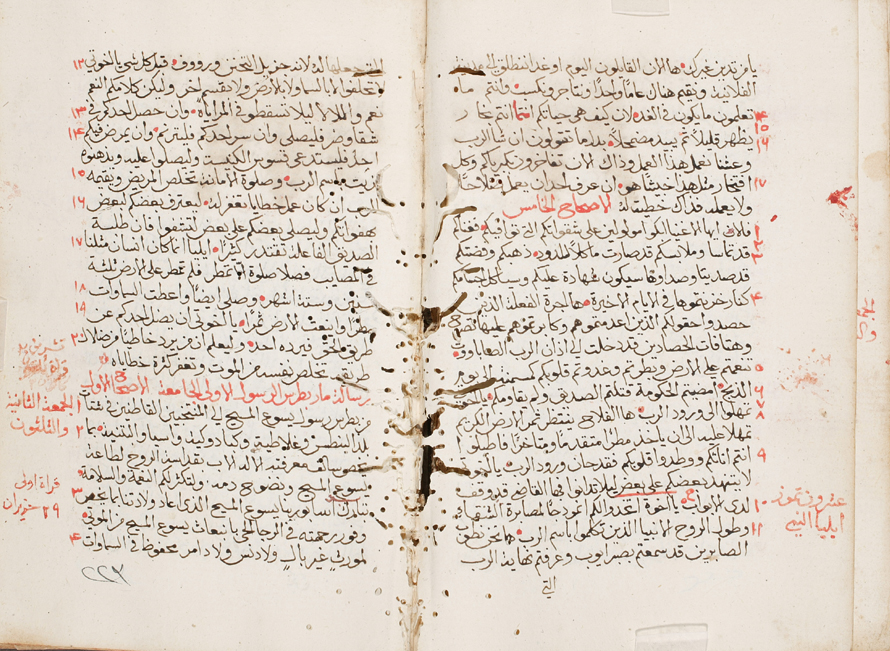 يا مرتدين غيركن ها الان القايلون اليوم او غدا ننطلق الى مدينة
الفلانية ونقيم هناك عاما واحدا ونتاجر ونكسب وانتم ما
تعلمون ما يكون في الغد لان كيف هي حياتكم انما انتم بخار
١٤
١٥
يظهر قليلا ثم يبيد مضمحلا بدل ما تقولون ان شا الرب
١٦
وعشنا نعمل هذا العمل وذاك الان تفاخرون بكبرياكم وكل
افتخار مثل هذا خبيثا هو ان عرف احد ان يعمل فعلا صالحا
١٧
ولا يعمله فذاك خطية له الاصحاح الخامس
فالان ايها الاغنيا ابكوا مولولين على شقواتكم التي توافيكم فغناكم
١
٢
قد تماسا وملابسكم قد صارت ماكلا للدود ذهبكم وفضتكم
٣
قد صديتا وصداوها سيكون شهادة عليكم وسياكل اجسامكم
كنار ذخرتموها في الايام الاخيرة ها اجرة الفعلة الذين
٤
حصدوا حقولكم الذين
وهتافات الحصادين قد دخلت الى اذان الرب الصاباووت
تنعمتم على الارض وبطرتم وغدوتم قلوبكم كسمنة ليوم
٥
الذبح اقضيتم الحكومة قتلتم الصديق ولم يقاومكم يا اخوتي
٦
٧
تمهلوا الى ورود الرب ها الفلاح ينتظر ثمر الارض الكريم
٨
تمهلا عليه الى ان ياخذ مطرا متقدما ومتاخرا فاصبروا
انتم اناتكم ووطدوا قلوبكم فقد حان ورود الرب يا اخوتي
٩
لا يتنهد بعضكم على بعض ليلا تدانوا ها القاضي قد وقف
لدى الابواب يا اخوة اتخذوا لكم انموذجا لمصابرة المشقات
١٠
وطول الروح الانبيا الذين تكلموا باسم الرب ها نحن نطوب
١١
الصابرين قد سمعتم بصبر ايوب وعرفتم نهاية الرب
التي
عشرون تموز
ايليا النبي
لانه جزيل التحنن ورووف قبل كل شي يا اخوتي
١٢
لا تحلفوا لا بالسما ولا بالارض ولا بقسم اخر وليكن كلامكم النعم
نعم واللا لا ليلا تسقطوا في المراياة وان حصل احدكم في
١٣
شقا وضر فليصلي وان سر احدكم فليترنم وان مرض فيكم
١٤
احد فليستدعي قسوس الكنيسة وليصلوا عليه ويدهنوه
بزيت باسم الرب وصلوة الامانة تخلص المريض ويقيمه
١٥
الرب وان كان عمل خطايا يغفر له ليعترف بعضكم لبعض
١٦
بهفواتكم وليصلي بعضكم على بعض لتشفوا فان طلبة
الصديق الفاعلة تقتدر كثيرا ايليا انما كان انسان مثلنا
١٧
في المصايب فصلا صلوة الا تمطر فلم تمطر على الارض ثلثة
سنين وستة اشهر وصلى ايضا واعطت السماوات
١٨
مطرا وانبعت الارض ثمرا يا اخوتي ان يضل احدكم عن
١٩
طريق الحق ويرده احد وليعلم ان من يرد خاطيا من ضلالة
٢٠
طريقه تخلص نفسه من الموت وتغفر كثرة خطاياه
رسالة مار بطرس الرسول الاولى الجامعة الاصحاح الاول
من بطرس رسول يسوع المسيح الى المنتخبين القاطنين في شتات
١
بلد البنطس وغلاطية وكبادوكية واسيا والبثنية بما
٢
سبق معرفة الله الاب بقداسة الروح لطاعة
يسوع المسيح ونضوح دمه ولتكثر لكم النعمة والسلامة
تبارك الله ابو ربنا يسوع المسيح الذي اعاد ولادتنا بما يخص
٣
وفور رحمته في الرجا الحي بانبعاث يسوع المسيح من الموتى
لموريث غير بال ولا دنس ولا دامر محفوظ في السماوات
٤
قراة
الجمعة الثانية
والثلثون
قراة اولى
٢٩ حزيران